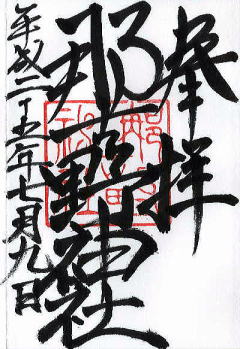 奉拝
那古野神社
平成二十五年七月九日